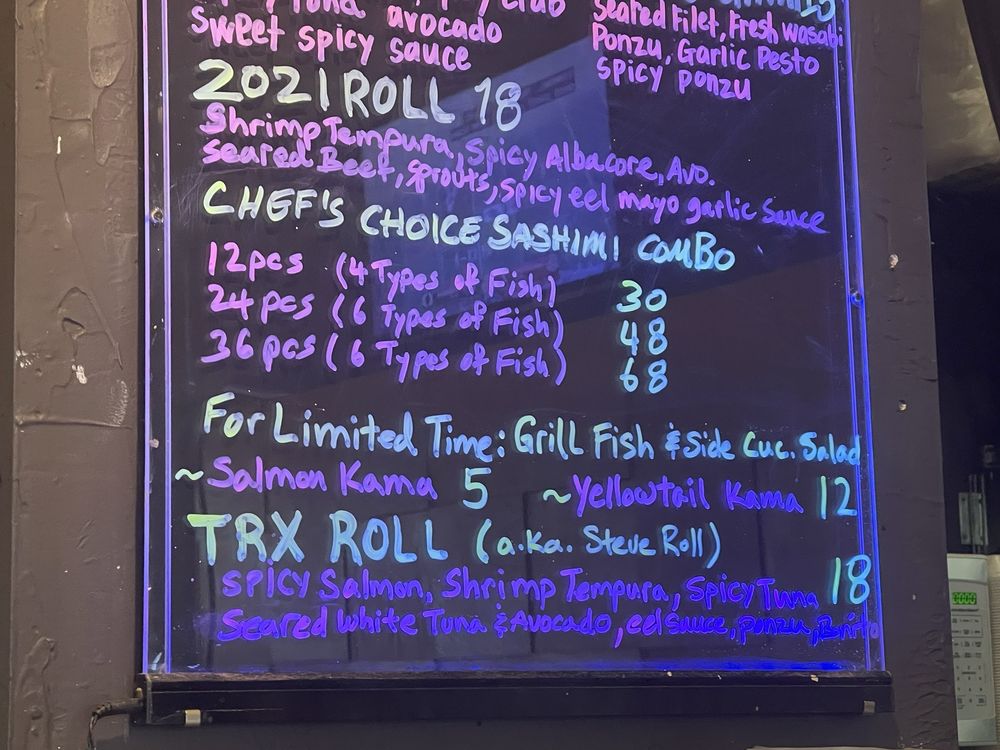 avocado
Sweet spicy sauce
Seared Filet, Fresh wasabi
Ponzu, Garlic Pesto
spicy ponzu
2021 ROLL 18
Shrimp Tempura, Spicy Albacore, Avo.
Seared Beef, Sprouts, Spicy eel mayo garlic Sauce
CHEF'S CHOICE SASHIMI COMBO
12pcs (4 Types of Fish) 30
24 pcs (6 Types of Fish) 48
36 pcs (6 Types of Fish) 68
For Limited Time: Grill Fish & Side Cuc. Salad
~Salmon Kama 5 ~Yellowtail Kama 12
TRX ROLL (a.k.a. Steve Roll)
Spicy Salmon, Shrimp Tempura, Spicy Tuna 18
Seared White Tuna & Avocado, eel Sauce, ponzu,